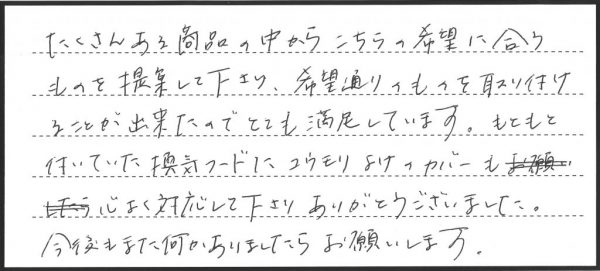 たくさんある商品の中からこちらの希望に合う
ものを提案して下さり、希望通りのものを取り付け
ることが出来たのでとても満足しています。もともと
付いていた換気フードにコウモリよけのカバーもお願い
したら心よく対応して下さりありがとうございました。
今後もまた何かありましたらお願いします。